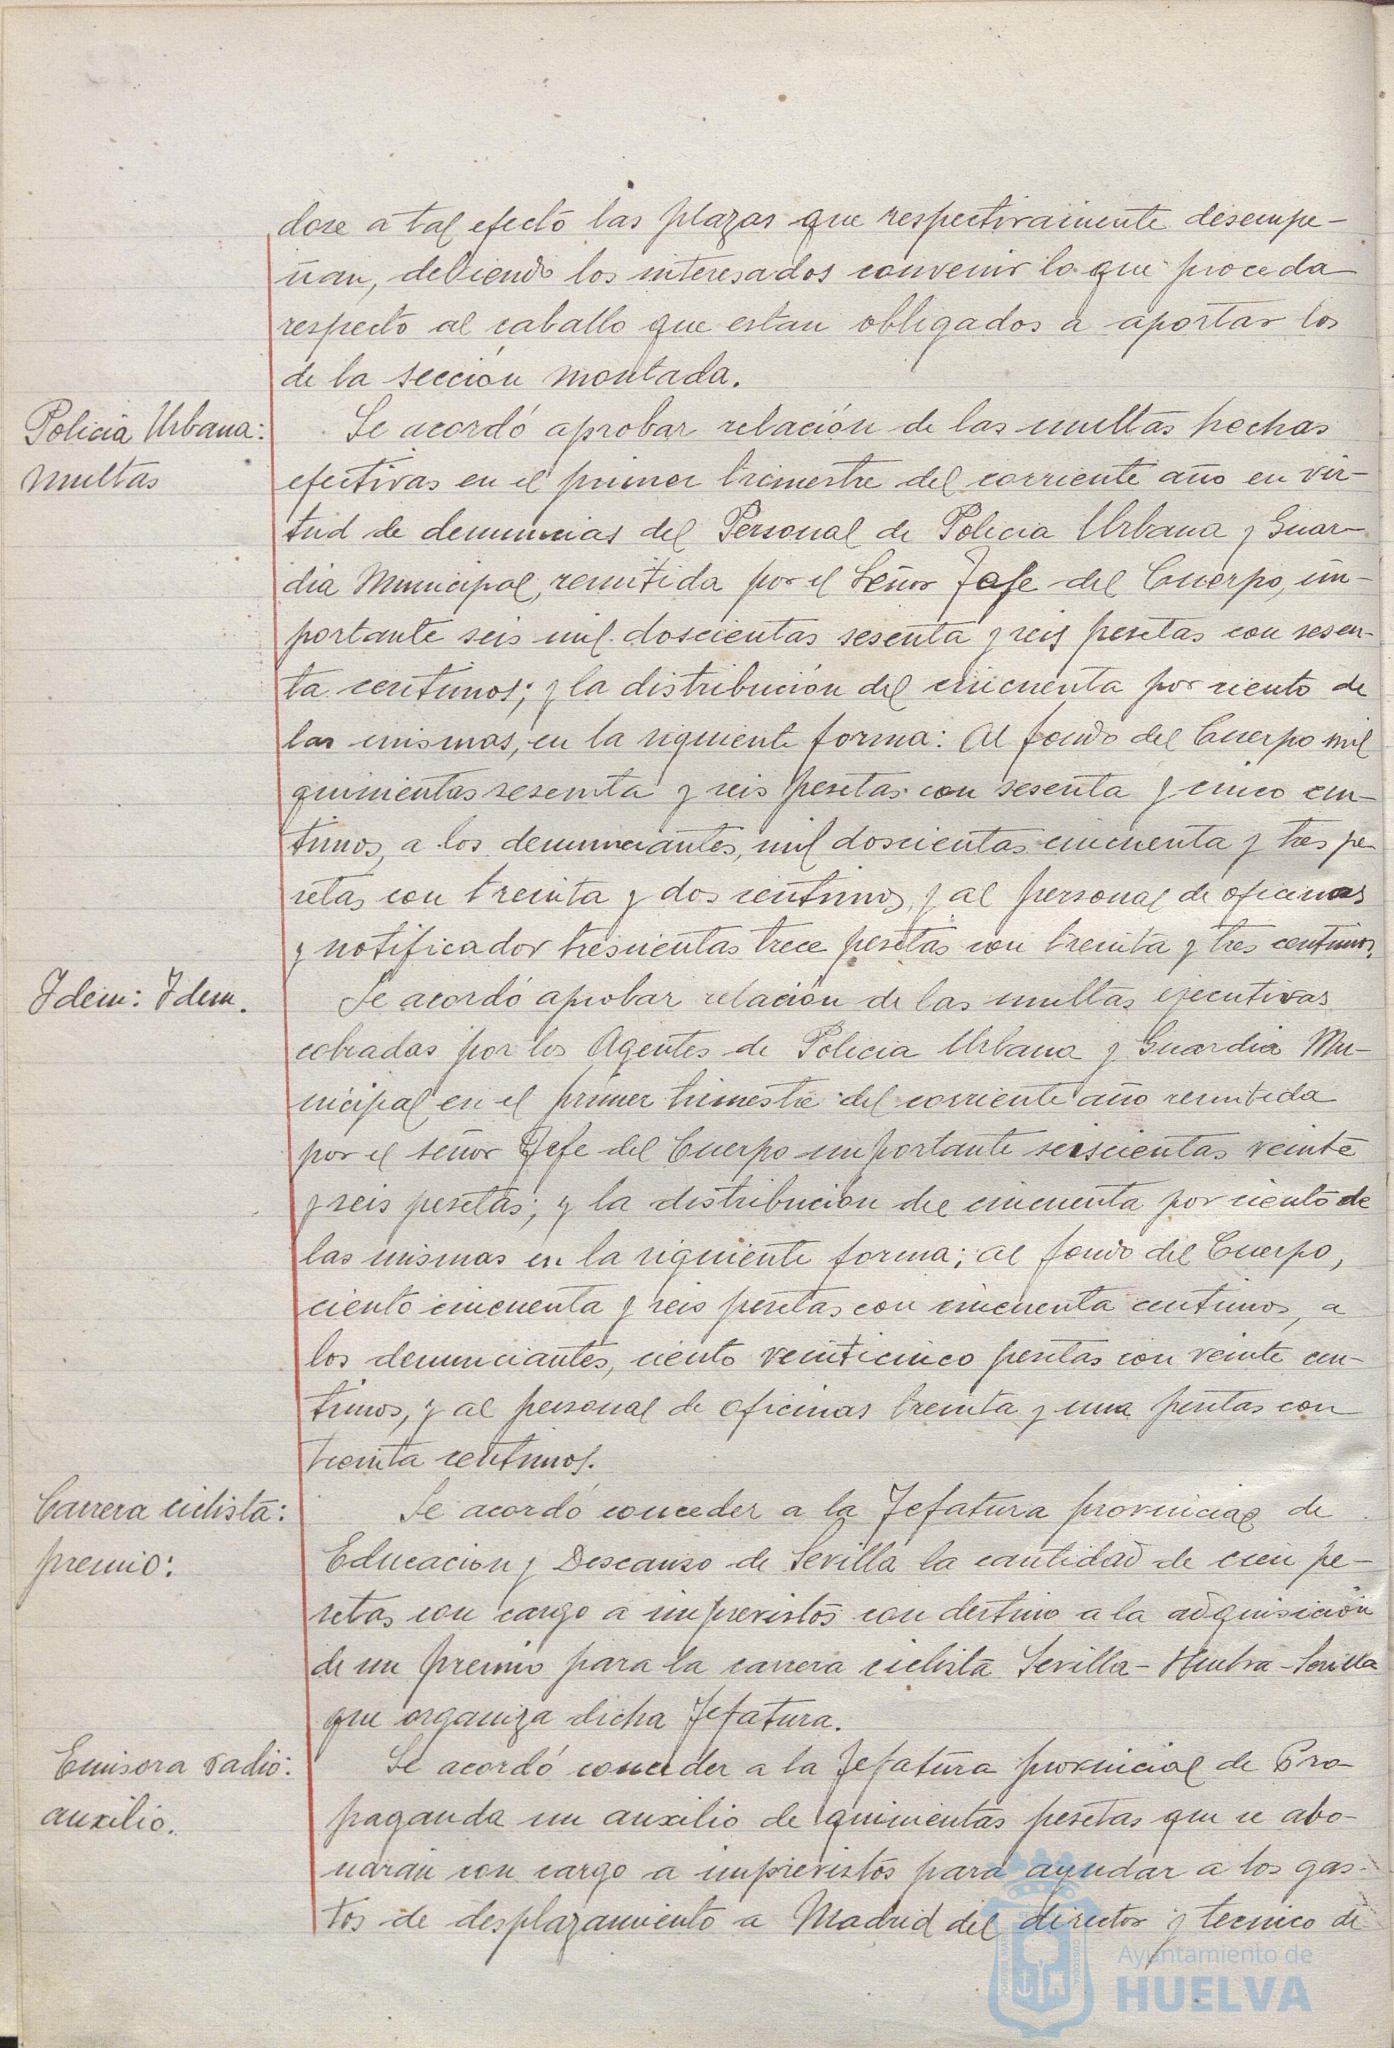 dose a tal efecto las plazas que respectivamente desempe-
ñan, debiendo los interesados convenir lo que proceda
respecto al caballo que estan obligados a aportar los
de la sección montada.
Policia Urbana:
multas
Se acordó aprobar relación de las multas hechas
efectivas en el primer trimestre del corriente año en vir-
tud de denuncias del Personal de Policia Urbana y Guar-
dia Municipal, remitida por el Señor Jefe del Cuerpo, im-
portante seis mil doscientas sesenta y seis pesetas con sesen-
ta centimos; y la distribución del cincuenta por ciento de
las mismas, en la siguiente forma: Al fondo del Cuerpo mil
quinientas sesenta y seis pesetas con sesenta y cinco cen-
timos, a los denunciantes, mil doscientas cincuenta y tres pe-
setas con treinta y dos centimos, y al personal de oficinas
y notificador trescientas trece pesetas con treinta y tres centimos.
Idem: Idem.
Se acordó aprobar relación de las multas ejecutivas
cobradas por los Agentes de Policia Urbana y Guardia Mu-
nicipal en el primer trimestre del corriente año remitida
por el señor Jefe del Cuerpo importante seiscientas veinte
y seis pesetas; y la distribucion del cincuenta por ciento de
las mismas en la siguiente forma; al fondo del Cuerpo,
ciento cincuenta y seis pesetas con cincuenta centimos, a
los denunciantes, ciento veinticinco pesetas con veinte cen-
timos, y al personal de oficinas treinta y una pesetas con
treinta centimos.
Carrera ciclista:
premio:
Se acordó conceder a la Jefatura provincial de
Educacion y Descanso de Sevilla la cantidad de cien pe-
setas con cargo a imprevistos con destino a la adquisición
de un premio para la carrera ciclista Sevilla-Huelva-Sevilla
que organiza dicha Jefatura.
Emisora radio:
auxilio.
Se acordó conceder a la Jefatura provincial de Pro-
paganda un auxilio de quinientas pesetas que se abo-
narán con cargo a imprevistos para ayudar a los gas-
tos de desplazamiento a Madrid del director y tecnico de
Ayuntamiento de
HUELVA